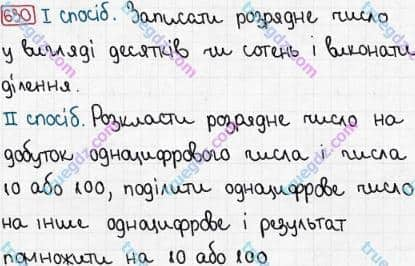 630 I спосіб. Записати розрядне число
у вигляді десятків чи сотень і виконати
ділення.
II спосіб. Розкласти розрядне число на
добуток одноцифрового числа і числа
10 або 100, поділити одноцифрове число
на інше одноцифрове і результат
помножити на 10 або 100